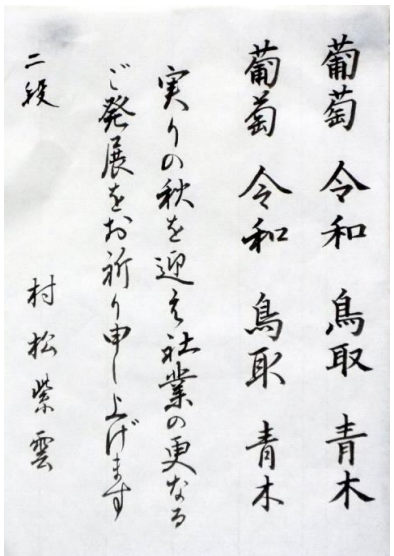 葡萄 令和 鳥取 青木
葡萄 令和 鳥取 青木
実りの秋を迎え社業の更なる
ご発展をお祈り申し上げます
二段 村松紫雲